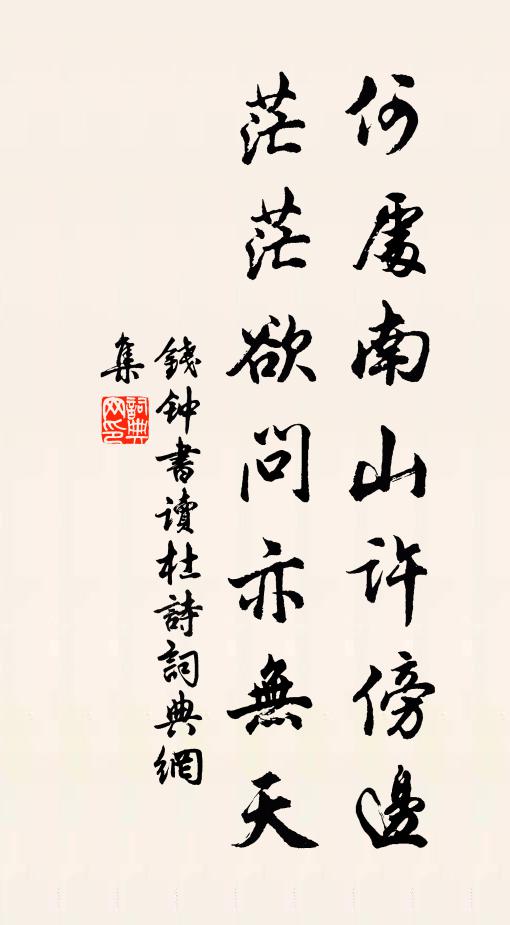 何處南山許傍邊
茫茫欲問亦無天
錢钟書读杜詩詞典網
集
詞典网印